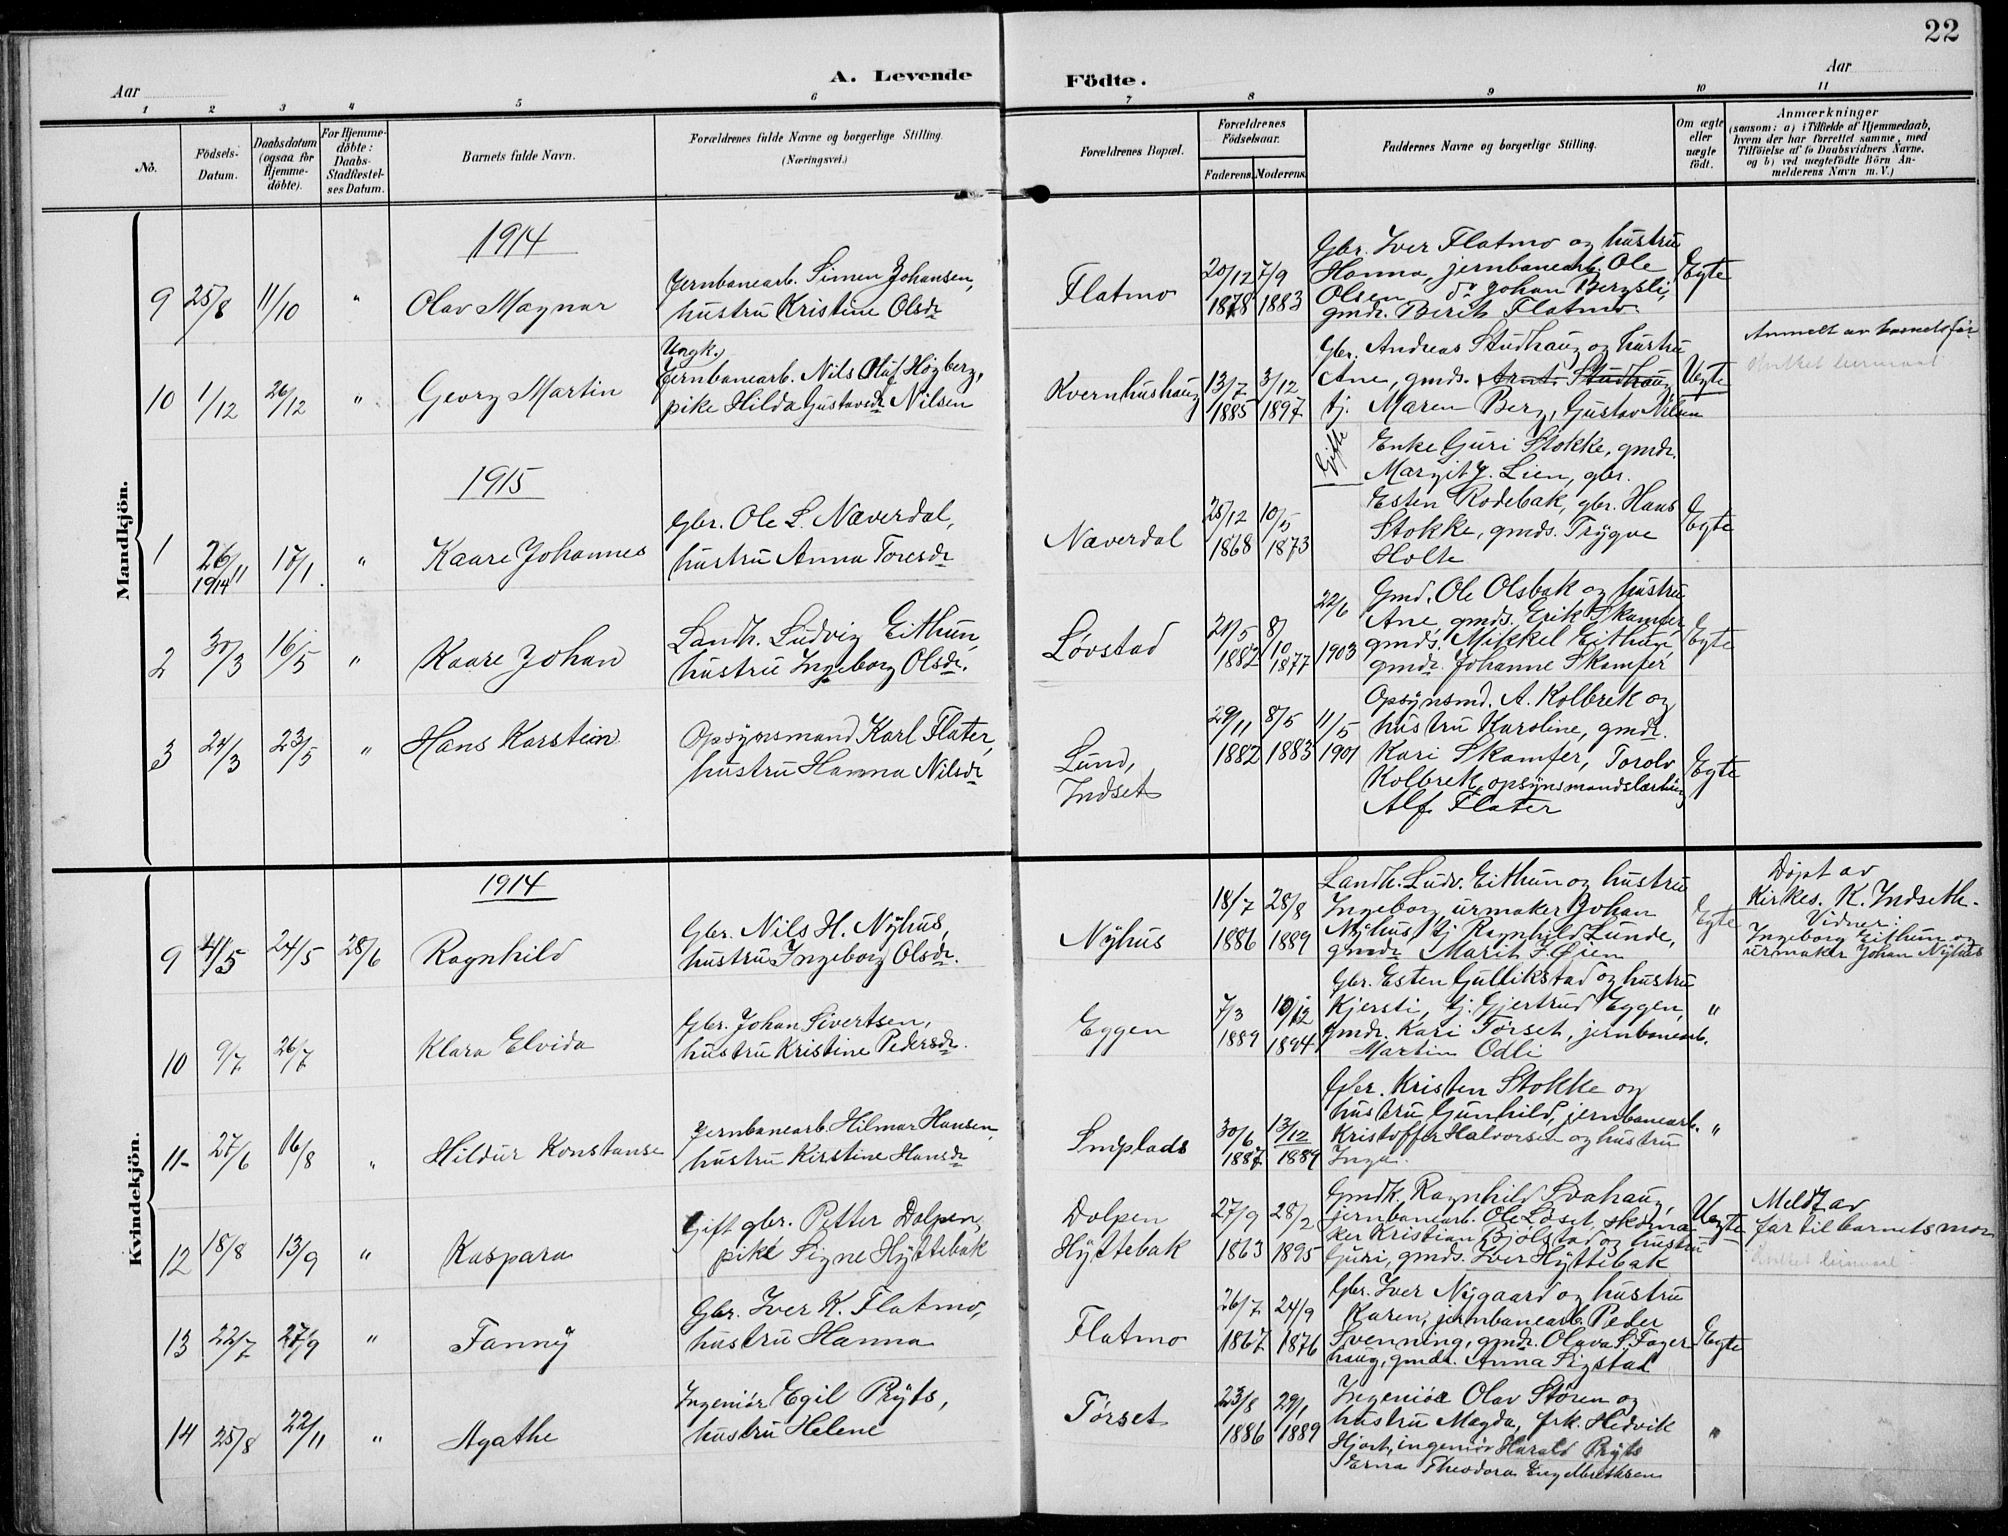 22
A. Levende Födte.
Aar Aar
1 2 3 4 5 6 7 8 9 10 11
No.
Födsels-Datum.
Daabsdatum (ogsaa for Hjemme-döbte).
For Hjemme-döbte: Daabs-Stadfestel-ses Datum.
Barnets fulde Navn.
Forældrenes fulde Navne og borgerlige Stilling.
(Næringsvei.)
Forældrenes Bopæl.
Forældrenes Födselsaar.
Faderens. Moderens.
Faddernes Navne og borgerlige Stilling.
Om ægte eller uægte födt.
Anmærkninger
(saasom: a) i Tilfælde af Hjemmedaab,
hvem der har forrettet samme, med
Tilföielse af to Daabsvidners Navne,
og b) ved uægtefödte Börn An-
melderens Navn m. V.)
Mandkjön.
1914
9 25/8 11/10 " Olav Magnar
Jernbanearb. Simen Johansen,
hustru Kristine Olsdr
Flatmo
20/12 1878 7/9 1883
Gbr. Iver Flatmo og hustru
Hanna, jernbanearb. Ole
Olsen do Johan Bergsli,
gmdr. Berit Flatmo
Egte
10 1/12 26/12 " Georg Martin
Ungk.
Jernbanearb. Nils Oluf Högberg,
pike Hilda Gustavsdr Nilsen
Kvernhushaug
13/7 1885 3/12 1897
Gbr. Andreas Studhaug og hustru
Ane, gmds. Arnt Studhaug
tj. Maren Berg, Gustav Nilsen
Uegte
Anmelt av barnets far
1915
Gifte
1 26/11 1914 17/1 " Kaare Johannes
Gbr. Ole L. Næverdal,
hustru Anna Toresdr
Næverdal
25/12 1868 10/5 1873
Enke Guri Stokke, gmdr.
Margit J. Lien, gbr.
Esten Rodebak, gbr. Hans
Stokke, gmds. Trygve
Holte
Egte
2 30/3 16/5 " Kaare Johan
Landh. Ludvig Eithun,
hustru Ingeborg Olsdr.
Lövstad
21/5 1882 8/10 1877 22/6 1903
Gmd. Ole Olsbak og hustru
Ane, gmds. Erik Skamfer,
gmds. Mikkel Eithun,
gmdr. Johanne Skamfer
Egte
3 24/3 23/5 " Hans Karstein
Opsynsmand Karl Flater,
hustru Hanna Nilsdr
Lund,
Indset
29/11 1882 8/5 1883 11/5 1901
Opsynsmd. A. Kolbrek og
hustru Karoline, gmdr.
Kari Skamfer, Torolv
Kolbrek, opsynsmandslærling
Alf Flater
Egte
Kvindekjön.
1914
9 4/5 24/5 28/6 Ragnhild
Gbr. Nils H. Nyhus,
hustru Ingeborg Olsdr.
Nyhus
18/7 1886 28/8 1889
Landh. Ludv. Eithun og hustru
Ingeborg, urmaker Johan
Nyhus, tj. Ragnhild Lunde,
gmdr Marit F. Øien
Egte
Döpt av
Kirkes. K. Indseth.
Vidner:
Ingeborg Eithun og
urmaker Johan Nyhus
10 9/7 26/7 Klara Elvida
Gbr. Johan Sivertsen,
hustru Kristine Pedersdr.
Eggen
7/3 1889 10/12 1894
Gbr. Esten Gullikstad og hustru
Kjersti, tj. Gjertrud Eggen,
gmdr. Kari Törset, jernbanearb.
Martin Odli
"
11- 27/6 16/8 " Hildur Konstanse
Jernbanearb. Hilmar Hansen,
hustru Kirstine Hansdr
Smplads
30/6 1887 13/12 1889
Gbr. Kristen Stokke og
hustru Gunhild, jernbanearb.
Kristoffer Halvorsen og hustru
Inga.
"
12 18/8 13/9 " Kaspara
Gift gbr. Petter Dolpen,
pike Signe Hyttebak
Dolpen
Hyttebak
27/9 1863 28/2 1895
Gmdk. Ragnhild Svahaug,
jernbanearb. Ole Löset, skoma-
ker Kristian Bjölstad og hustru
Guri, gmds. Iver Hyttebak
Uegte
Meldt av
far til barnets mor
13 22/7 27/9 " Fanny
Gbr. Iver K. Flatmo,
hustru Hanna
Flatmo
26/7 1867 24/9 1876
Gbr. Iver Nygaard og hustru
Karen, jernbanearb. Peder
Svenning, gmdr. Olava S. Fager-
haug, gmdr. Anna Sigstad
Egte
14 25/8 22/11 " Agathe
Ingeniör Egil Pryts,
hustru Helene
Törset
23/8 1886 29/1 1889
Ingeniör Olav Stören og
hustru Magda, frk. Hedvik
Hjort, ingeniör Harald Pryts
Erna Theodora Engelbrethsen
"